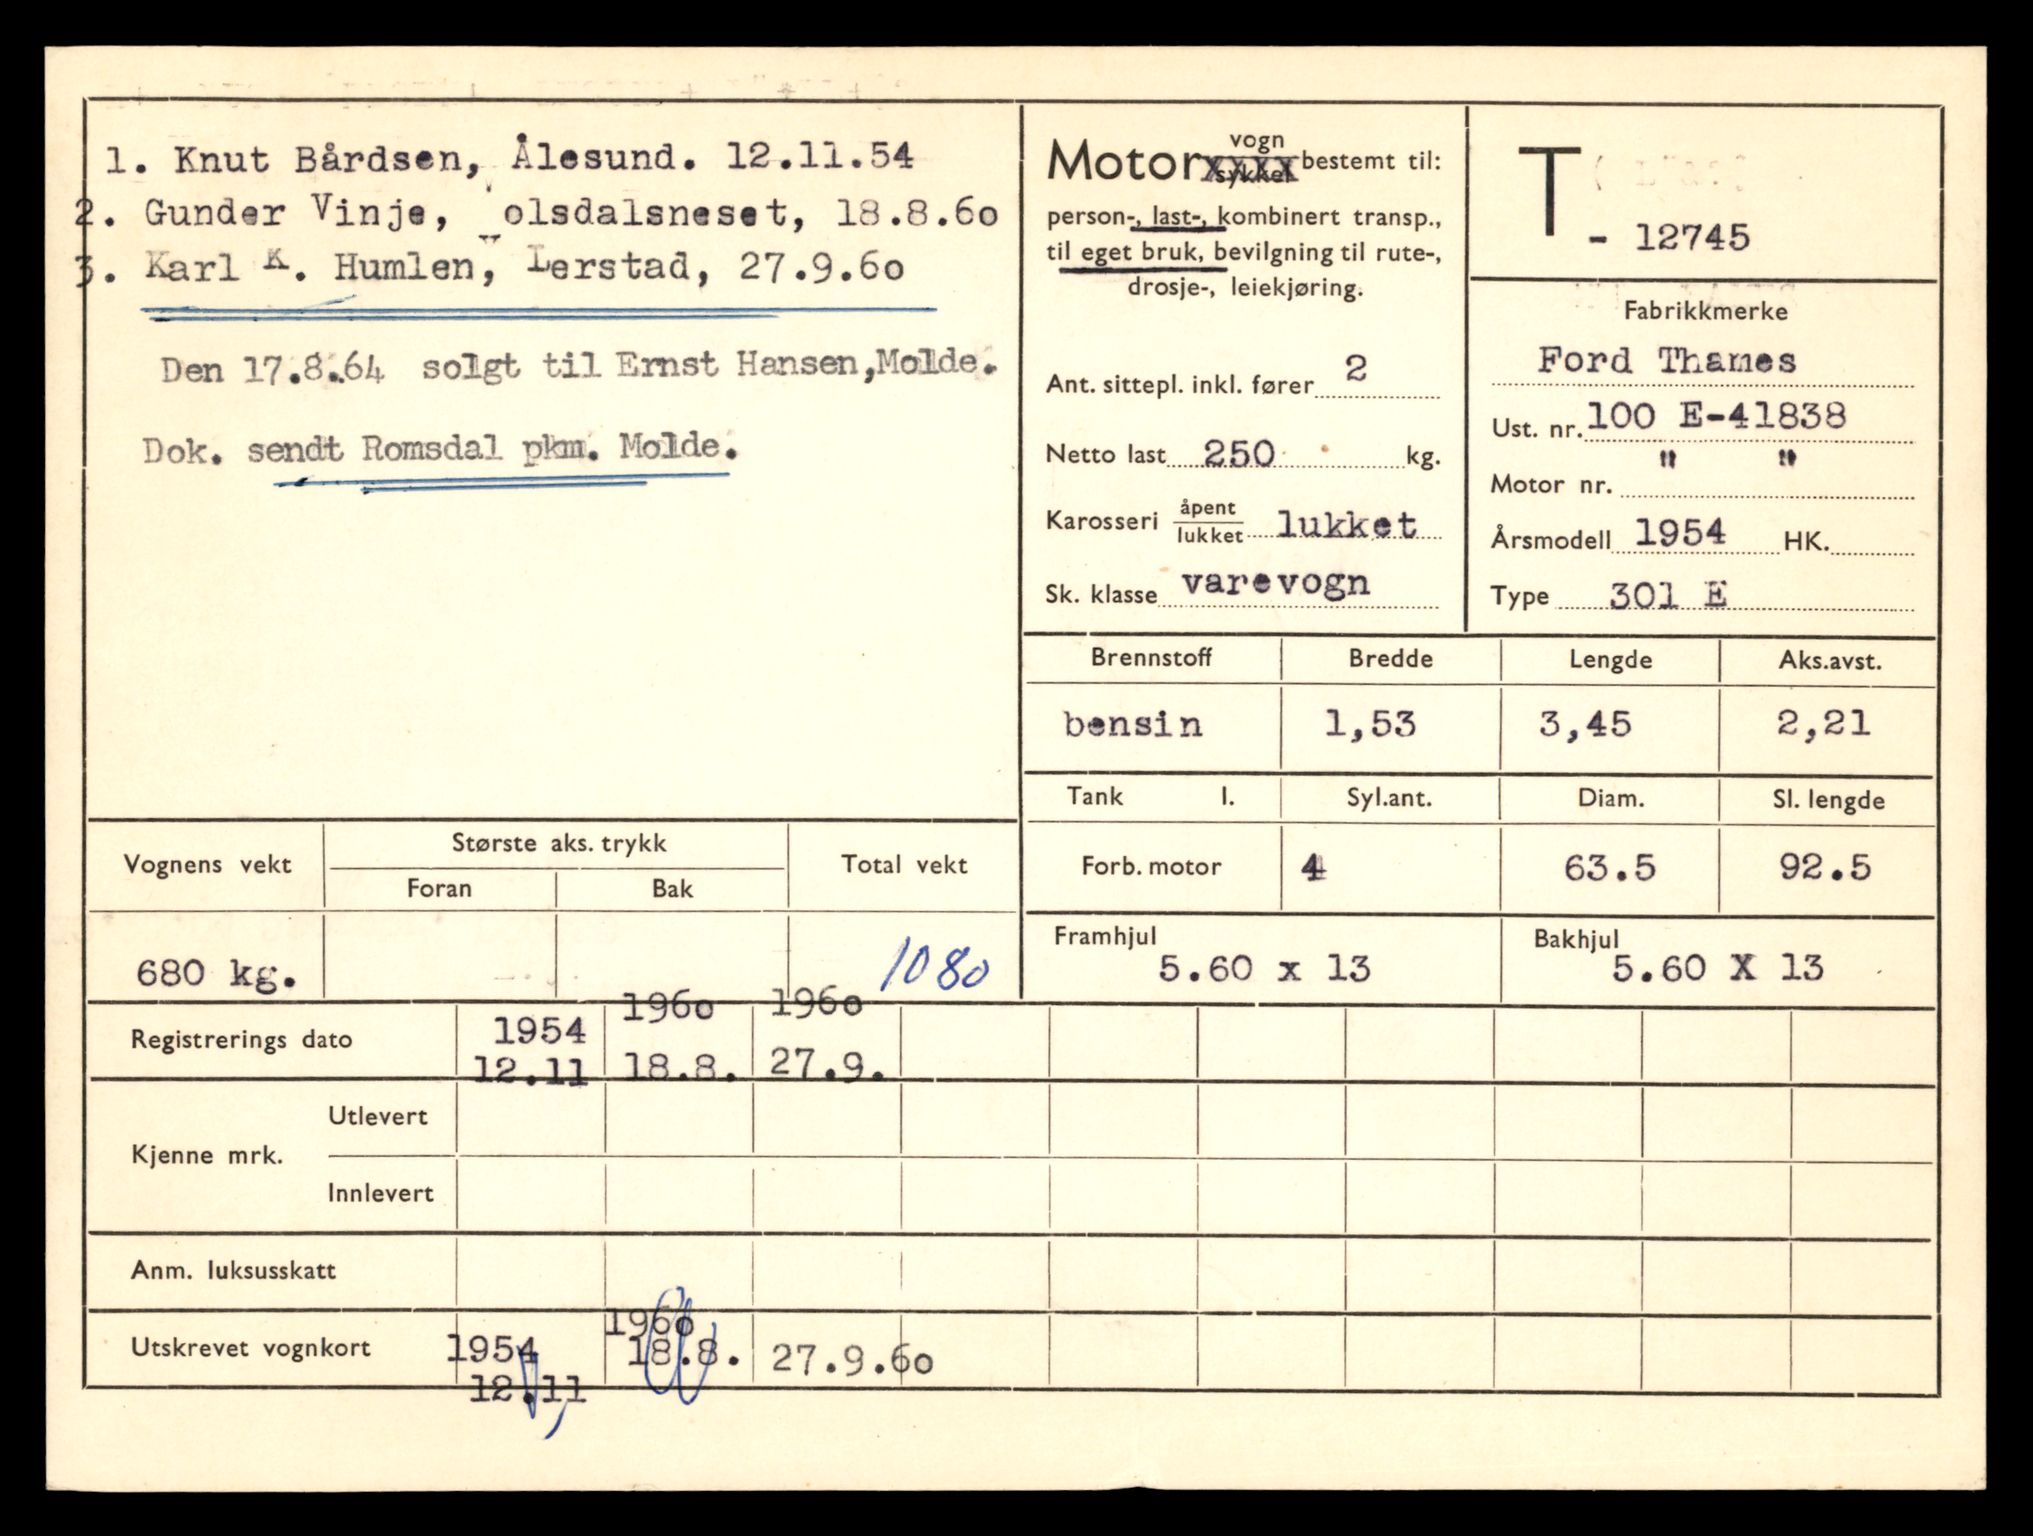 1. Knut Bårdsen, Ålesund. 12.11.54
2. Gunder Vinje, olsdalsneset, 18.8.60
3. Karl K. Humlen, Lerstad, 27.9.60
Den 17.8.64 solgt til Ernst Hansen, Molde.
Dok. sendt Romsdal pkm. Molde.
Motor vogn sykkel xxxx bestemt til:
person-, last-, kombinert transp.,
til eget bruk, bevilgning til rute-,
drosje-, leiekjøring.
Ant. sittepl. inkl. fører 2
Netto last 250 kg.
Karosseri åpent lukket lukket
Sk. klasse varevogn
T - 12745
Fabrikkmerke
Ford Thames
Ust. nr. 100 E-41838
Motor nr. " "
Årsmodell 1954 HK.
Type 301 E
Brennstoff Bredde Lengde Aks.avst.
bensin 1,53 3,45 2,21
Tank l. Syl.ant. Diam. Sl. lengde
Forb. motor 4 63.5 92.5
Framhjul Bakhjul
5.60 x 13 5.60 X 13
Vognens vekt Største aks. trykk Total vekt
Foran Bak
680 kg. 1080
Registrerings dato 1954 1960 1960
12.11 18.8. 27.9.
Kjenne mrk. Utlevert
Innlevert
Anm. luksusskatt
Utskrevet vognkort 1954 1960
12.11 18.8. 27.9.60